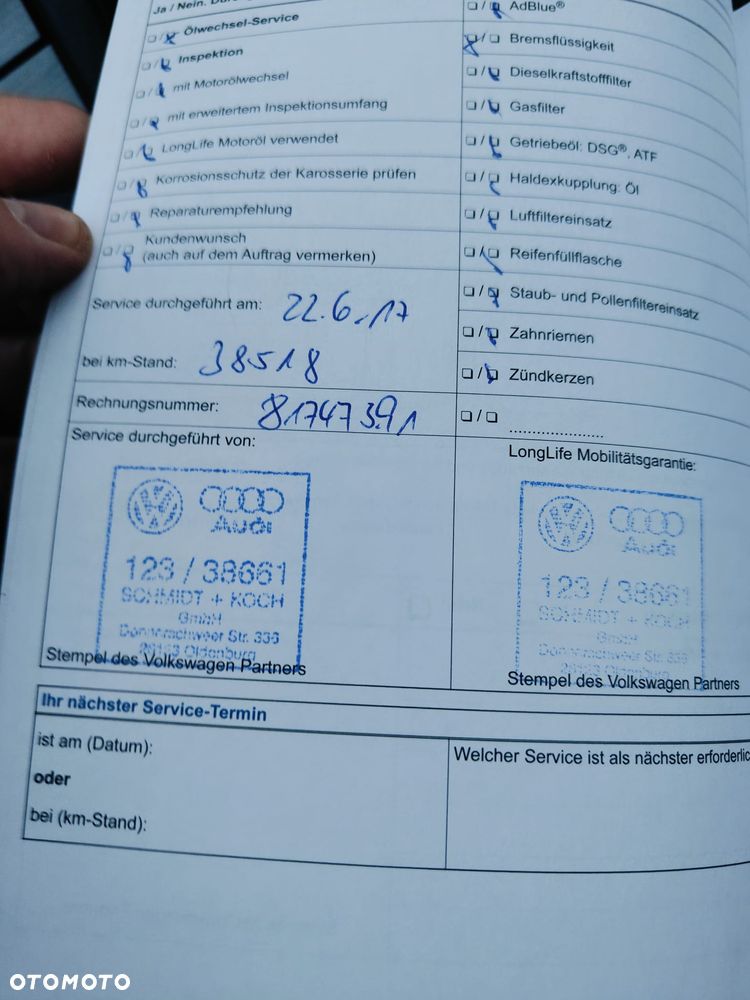 Ja / Nein.
❏/❏ Ölwechsel-Service
❏/❏ Inspektion
❏/❏ mit Motorölwechsel
❏/❏ mit erweitertem Inspektionsumfang
❏/❏ LongLife Motoröl verwendet
❏/❏ Korrosionsschutz der Karosserie prüfen
❏/❏ Reparaturempfehlung
❏/❏ Kundenwunsch
(auch auf dem Auftrag vermerken)
Service durchgeführt am: 22.6.17
bei km-Stand: 38518
Rechnungsnummer: 81747391
Service durchgeführt von:
Audi
123 / 38661
SCHMIDT + KOCH
GmbH
Donnerschweer Str. 336
Oldenburg
Stempel des Volkswagen Partners
❏/❏ AdBlue®
❏/❏ Bremsflüssigkeit
❏/❏ Dieselkraftstofffilter
❏/❏ Gasfilter
❏/❏ Getriebeöl: DSG®, ATF
❏/❏ Haldexkupplung: Öl
❏/❏ Luftfiltereinsatz
❏/❏ Reifenfüllflasche
❏/❏ Staub- und Pollenfiltereinsatz
❏/❏ Zahnriemen
❏/❏ Zündkerzen
❏/❏ ......................
LongLife Mobilitätsgarantie:
Audi
123 / 38661
SCHMIDT + KOCH
GmbH
Donnerschweer Str. 336
Oldenburg
Stempel des Volkswagen Partners
Ihr nächster Service-Termin
ist am (Datum):
oder
bei (km-Stand):
Welcher Service ist als nächster erforderlic
OTOMOTO